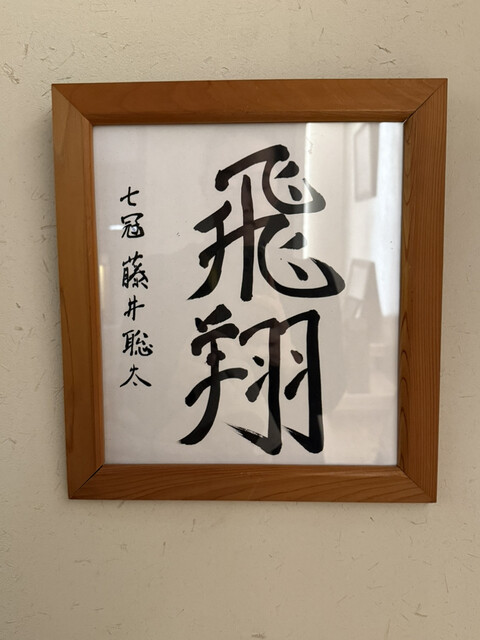 飛翔
七冠 藤井聡太